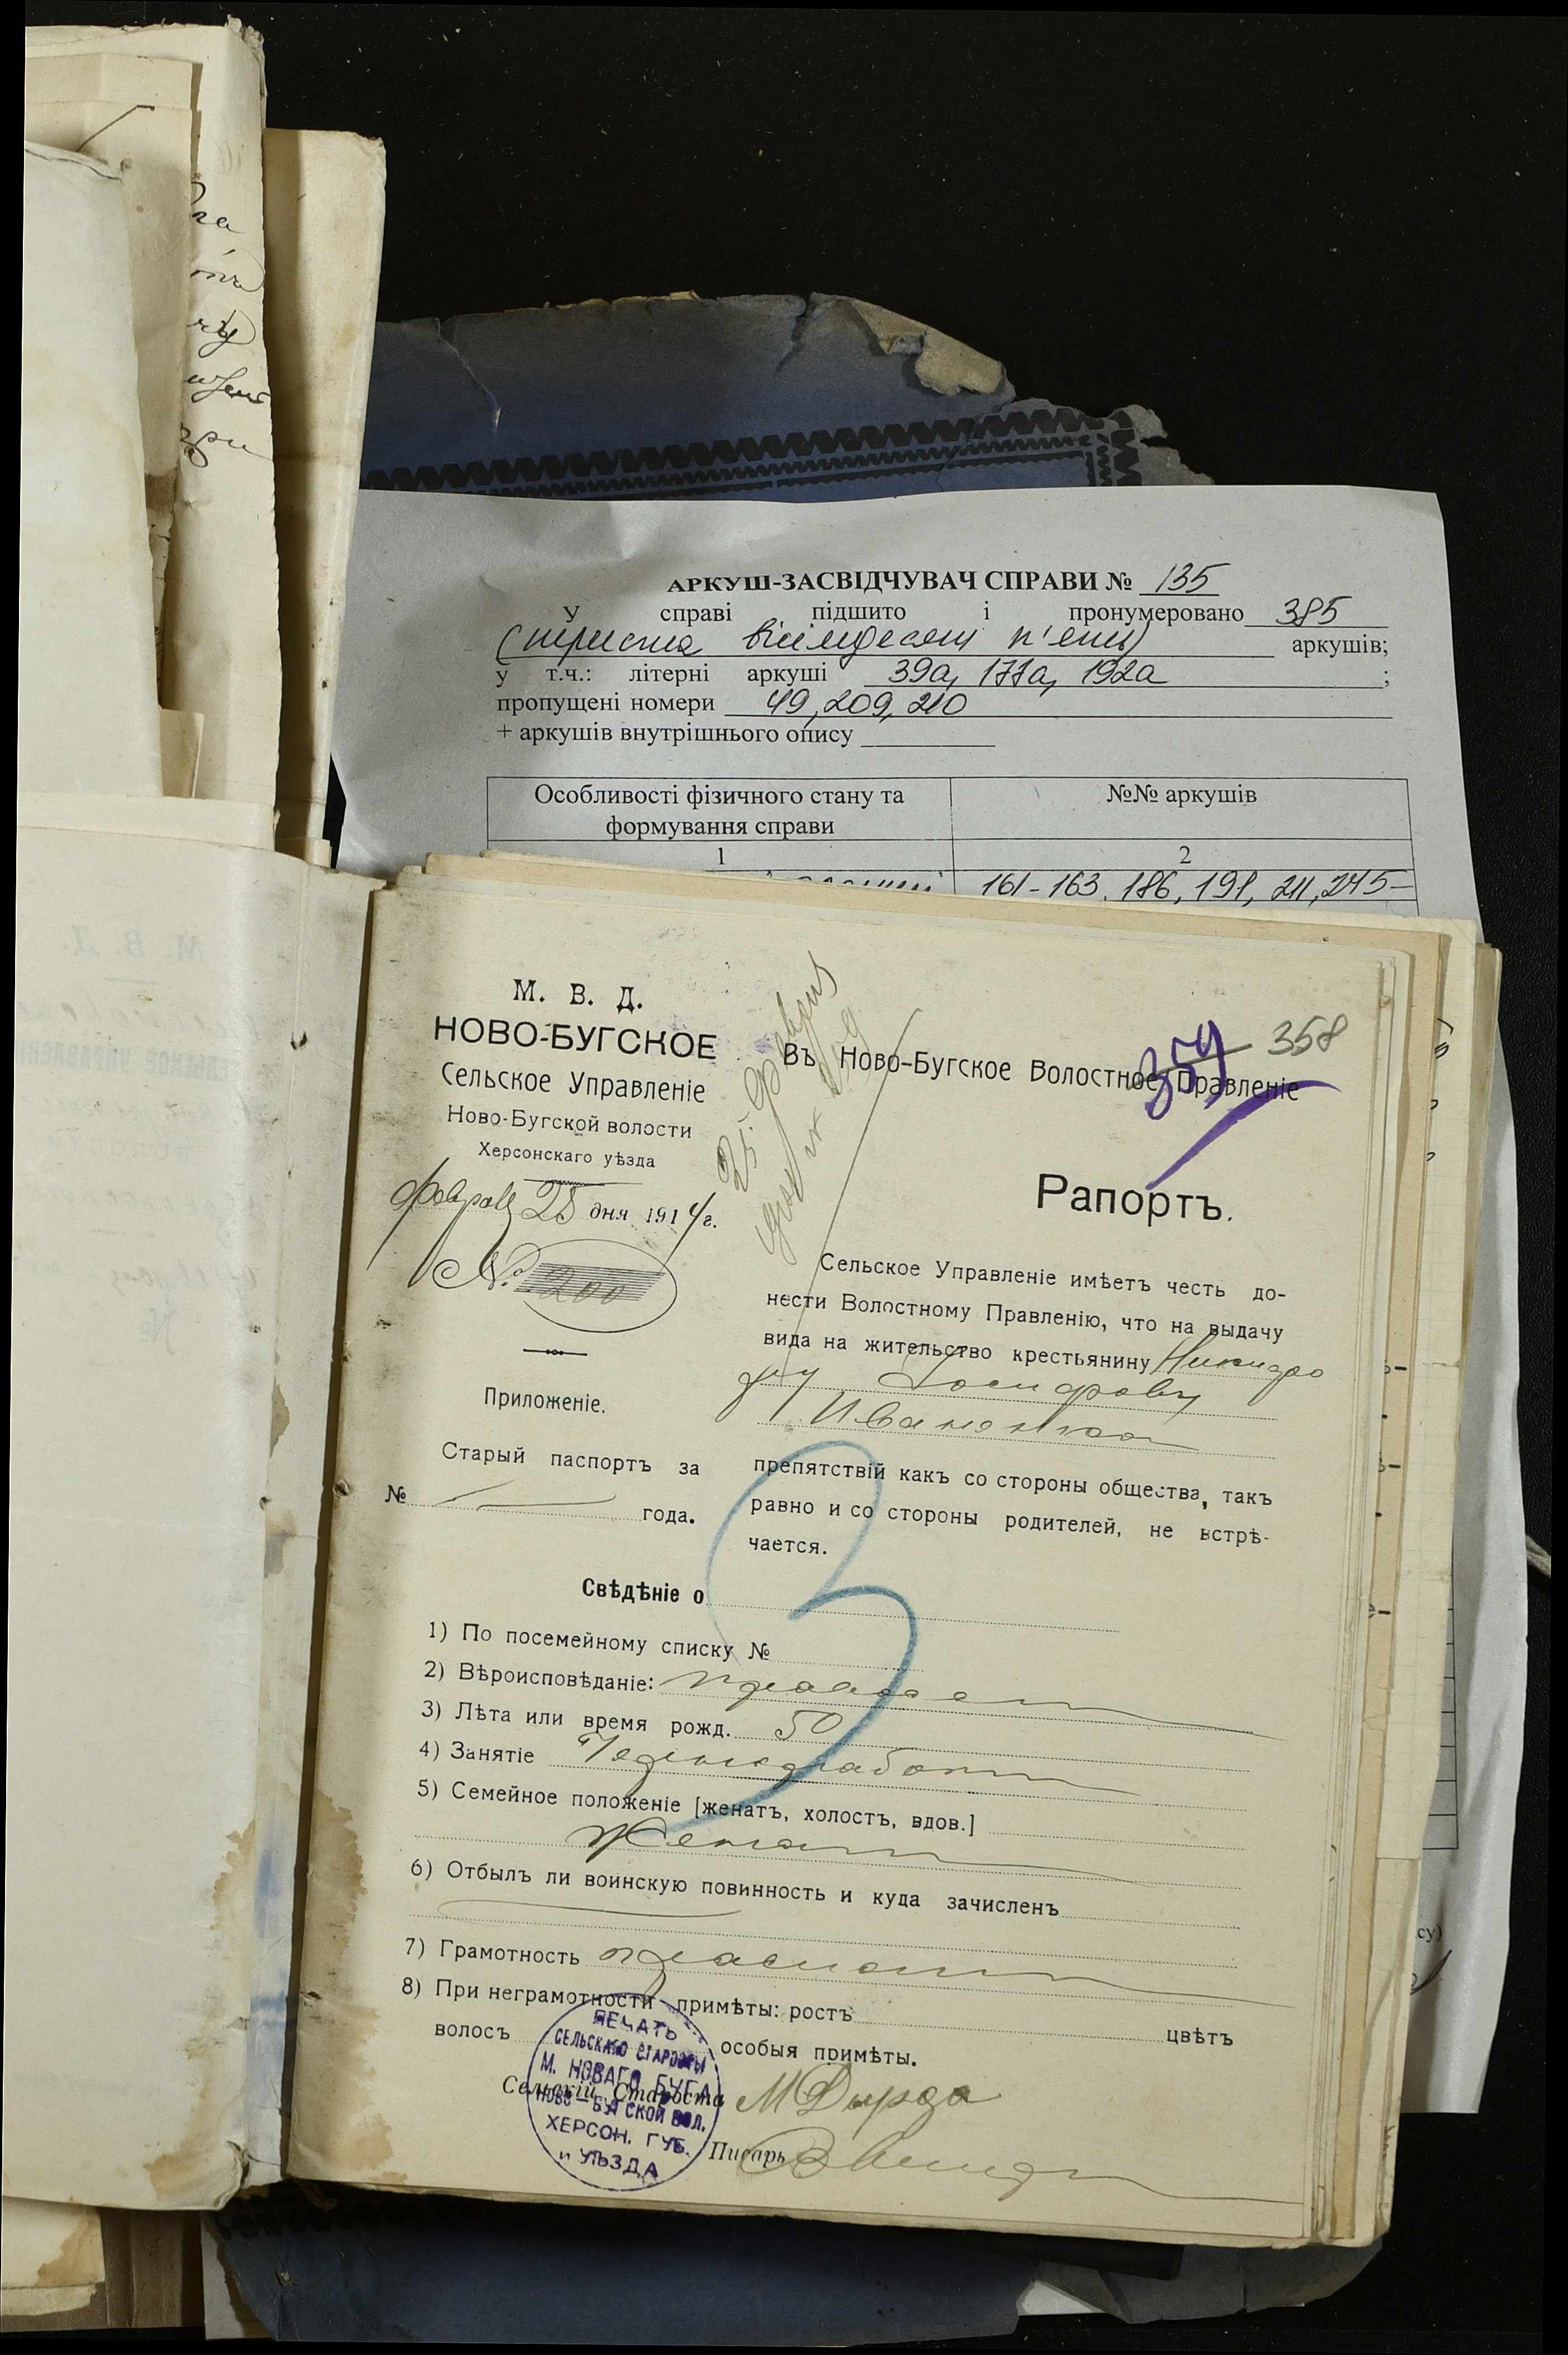 АРКУШ-ЗАСВІДЧУВАЧ СПРАВИ № 135
У справі підшито і пронумеровано 385
(триста вісімдесят п'ять) аркушів;
у т.ч.: літерні аркуші 39а, 171а, 192а ;
пропущені номери 49, 209, 210
+ аркушів внутрішнього опису
Особливості фізичного стану та формування справи
№№ аркушів
1
2
161-163, 186, 191, 211, 245-
М. В. Д.
НОВО-БУГСКОЕ
Сельское Управленіе
Ново-Бугской волости
Херсонскаго уѣзда
Февраля 25 дня 1914 г.
№ 200
Приложеніе.
Старый паспортъ за
№ года.
359 358
Въ Ново-Бугское Волостное Правленіе
Рапортъ.
Сельское Управленіе имѣетъ честь до-
нести Волостному Правленію, что на выдачу
вида на жительство крестьянину Никифо
ру Іосифову
Иваненко
препятствій какъ со стороны общества, такъ
равно и со стороны родителей, не встрѣ-
чается.
Свѣдѣніе о
1) По посемейному списку №
2) Вѣроисповѣданіе: православ
3) Лѣта или время рожд. 50
4) Занятіе Чернораб
5) Семейное положеніе [женатъ, холостъ, вдов.]
Женат
6) Отбылъ ли воинскую повинность и куда зачисленъ
7) Грамотность
8) При неграмотности примѣты: ростъ цвѣтъ
волосъ особыя примѣты.
Сельскій Староста М Дырда
Писарь
ПЕЧАТЬ
СЕЛЬСКАГО СТАРОСТЫ
М. НОВАГО БУГА
НОВО-БУГСКОЙ ВОЛ.
ХЕРСОН. ГУБ.
и УѢЗДА